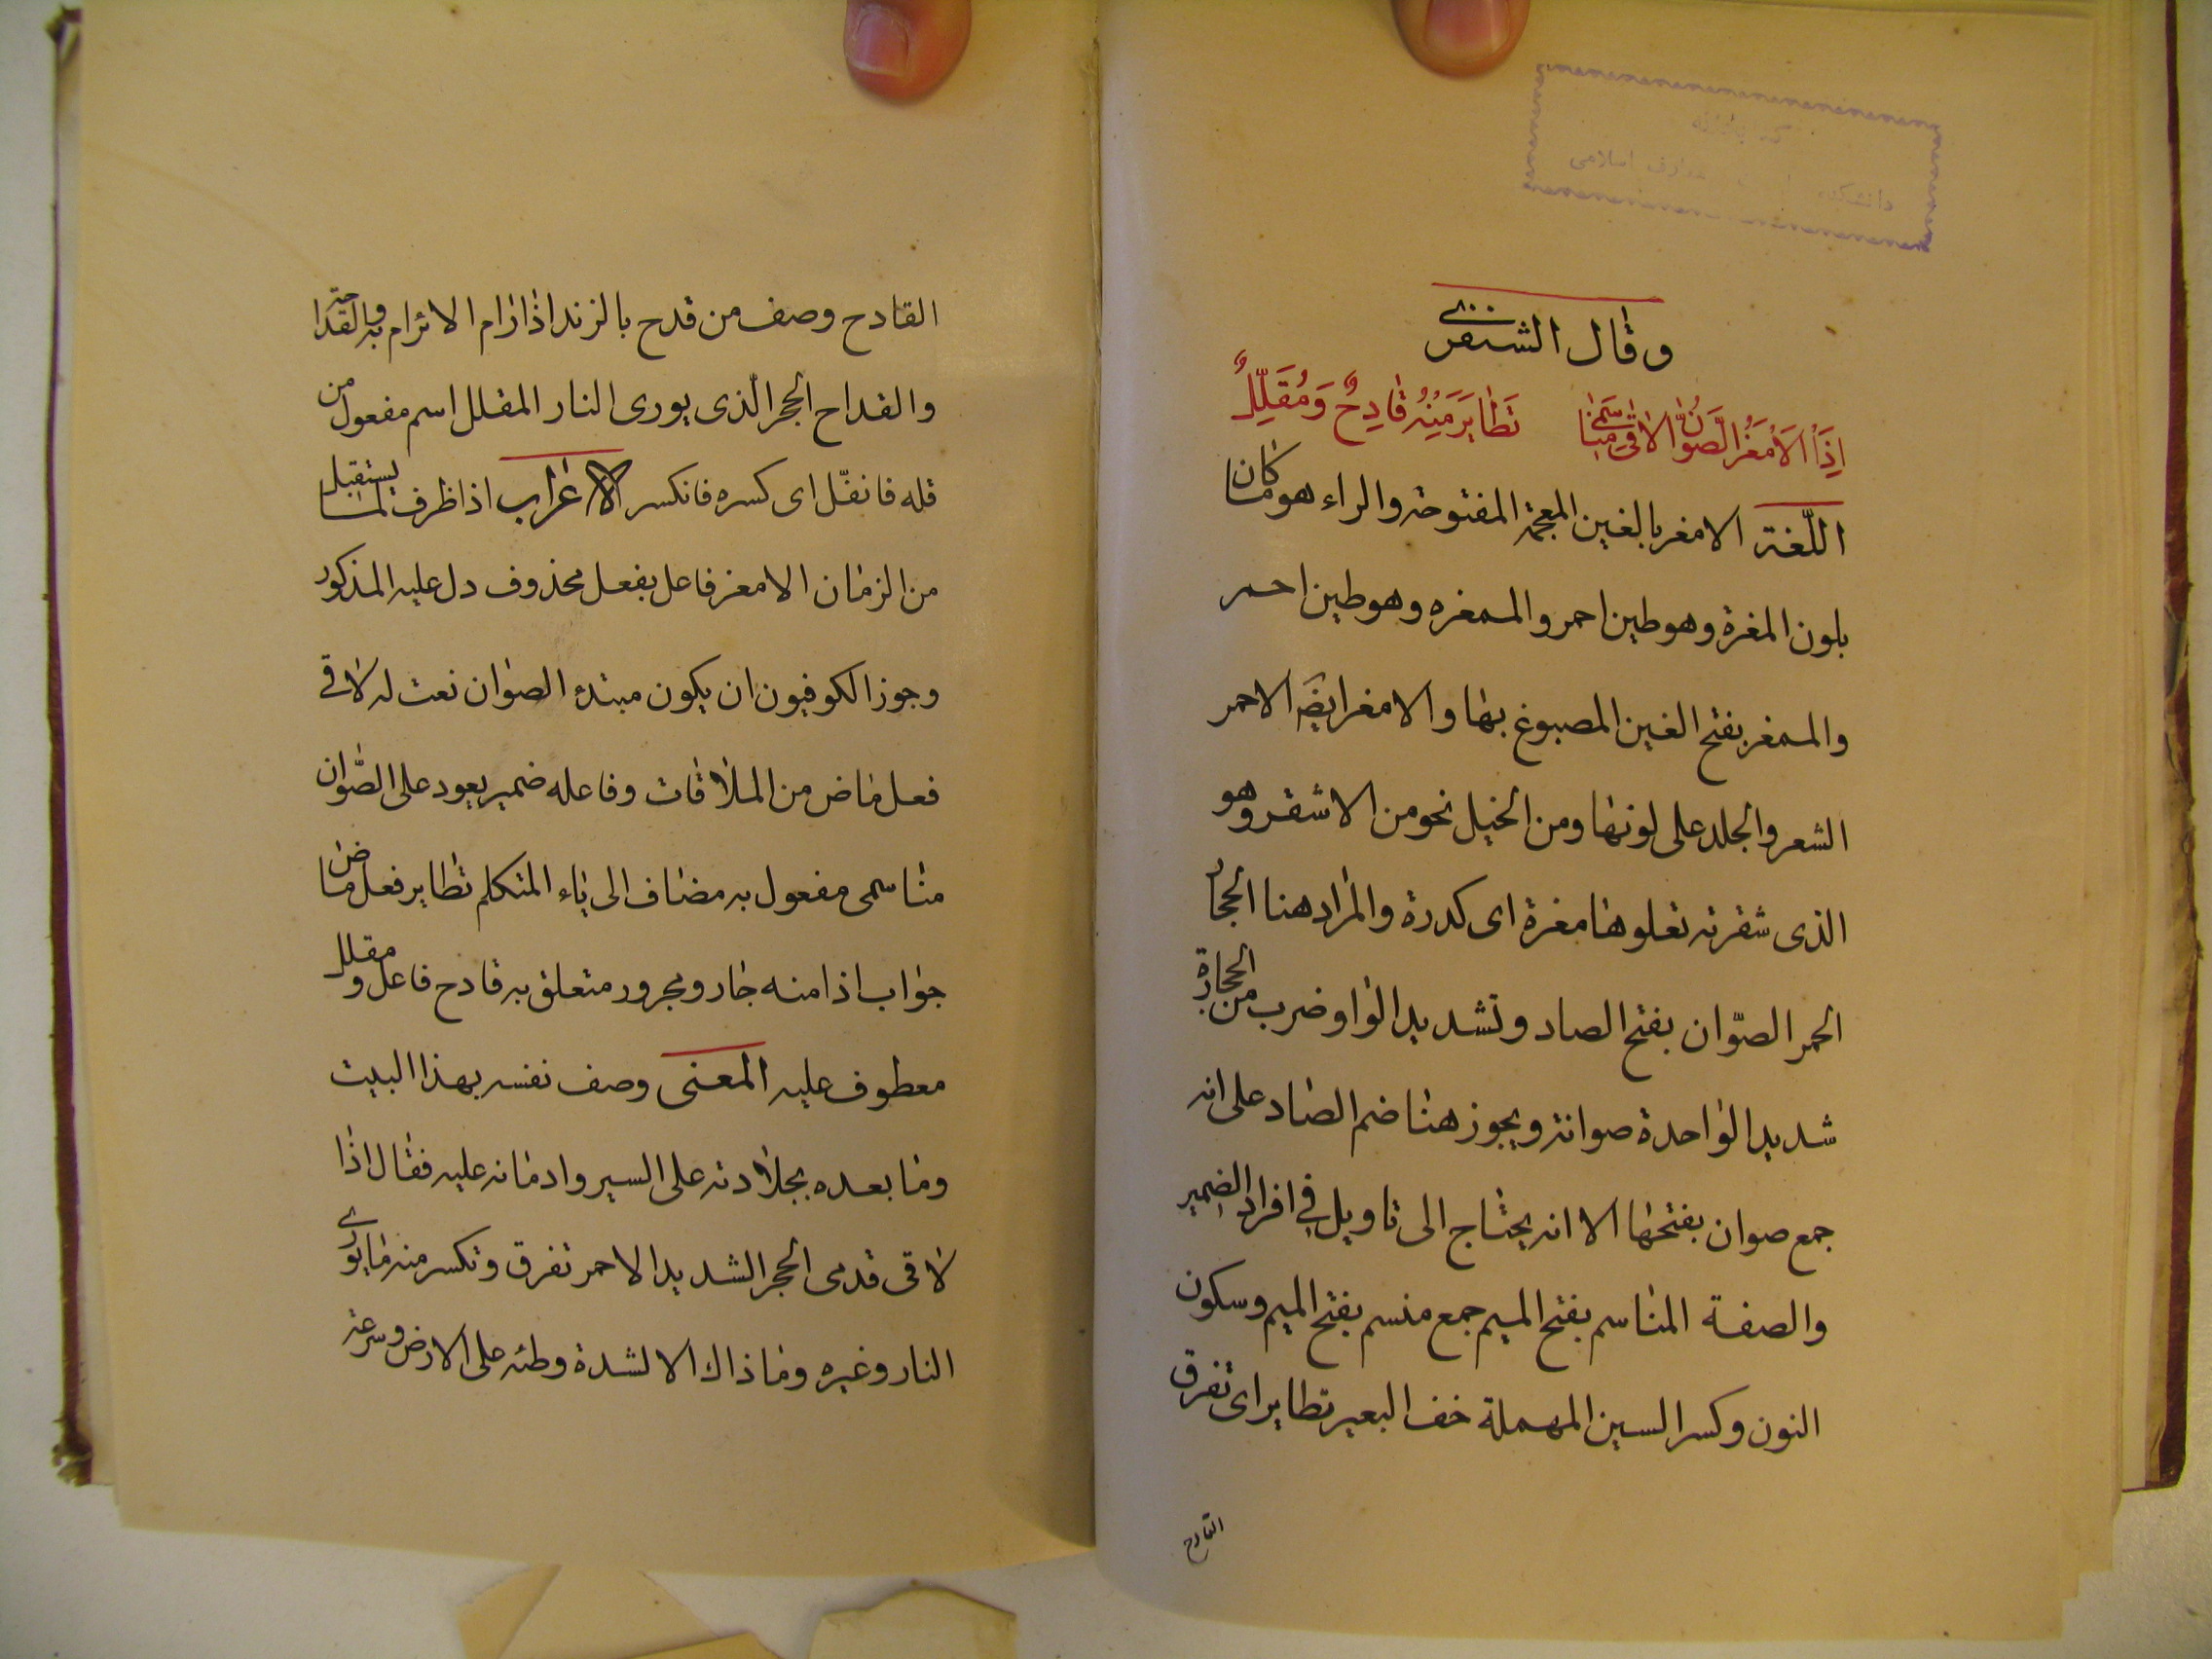 وقال الشنفرى
اِذَا الاَمْغَرُ الصَّوّانُ لاقٰى مَنٰاسِمى تَطٰايَرَ مِنْهُ قٰادِحٌ وَمُقَلَّلٌ
اللّغة الامغر بالغين المعجمة المفتوحة والراء هو ما كان
بلون المغرة وهو طين احمر والممغره وهو طين احمر
والممغر بفتح الغين المصبوغ بها والامغر ايضَا الاحمر
الشعر والجلد على لونها ومن الخيل نحو من الاشقر وهو
الذى شقرته تعلوها مغرة اى كدرة والمراد هنا الحجار
الحمر الصوّان بفتح الصاد وتشديد الواو ضرب من الحجارة
شديد الواحدة صوانة ويجوز هنا ضم الصاد على انه
جمع صوان بفتحها الا انه يحتاج الى تاويل فى افراد الضمير
والصفة المناسم بفتح الميم جمع منسم بفتح الميم وسكون
النون وكسر السين المهملة خف البعير تطاير اى تفرق
القادح
القادح وصف من قدح بالزند اذا رام الايراء به والقداحة
والقداح الحجر الّذى يورى النار المقلل اسم مفعول من
قله فانقلّ اى كسره فانكسر الاعراب اذا ظرف لما يستقبل
من الزمان الامغر فاعل بفعل محذوف دل عليه المذكور
وجوز الكوفيون ان يكون مبتدء الصوان نعت له لاقى
فعل ماض من الملاقات وفاعله ضمير يعود على الصّوان
مناسمى مفعول به مضاف الى ياء المتكلم تطاير فعل ماض
جواب اذا منه جار ومجرور متعلق به قادح فاعل ومقلل
معطوف عليه المعنى وصف نفسه بهذا البيت
وما بعده بجلادته على السير وادمانه عليه فقال اذا
لاقى قدمى الحجر الشديد الاحمر تفرق وتكسر منه ما يورى
النار وغيره وما ذاك الا لشدة وطئه على الارض وسرعة